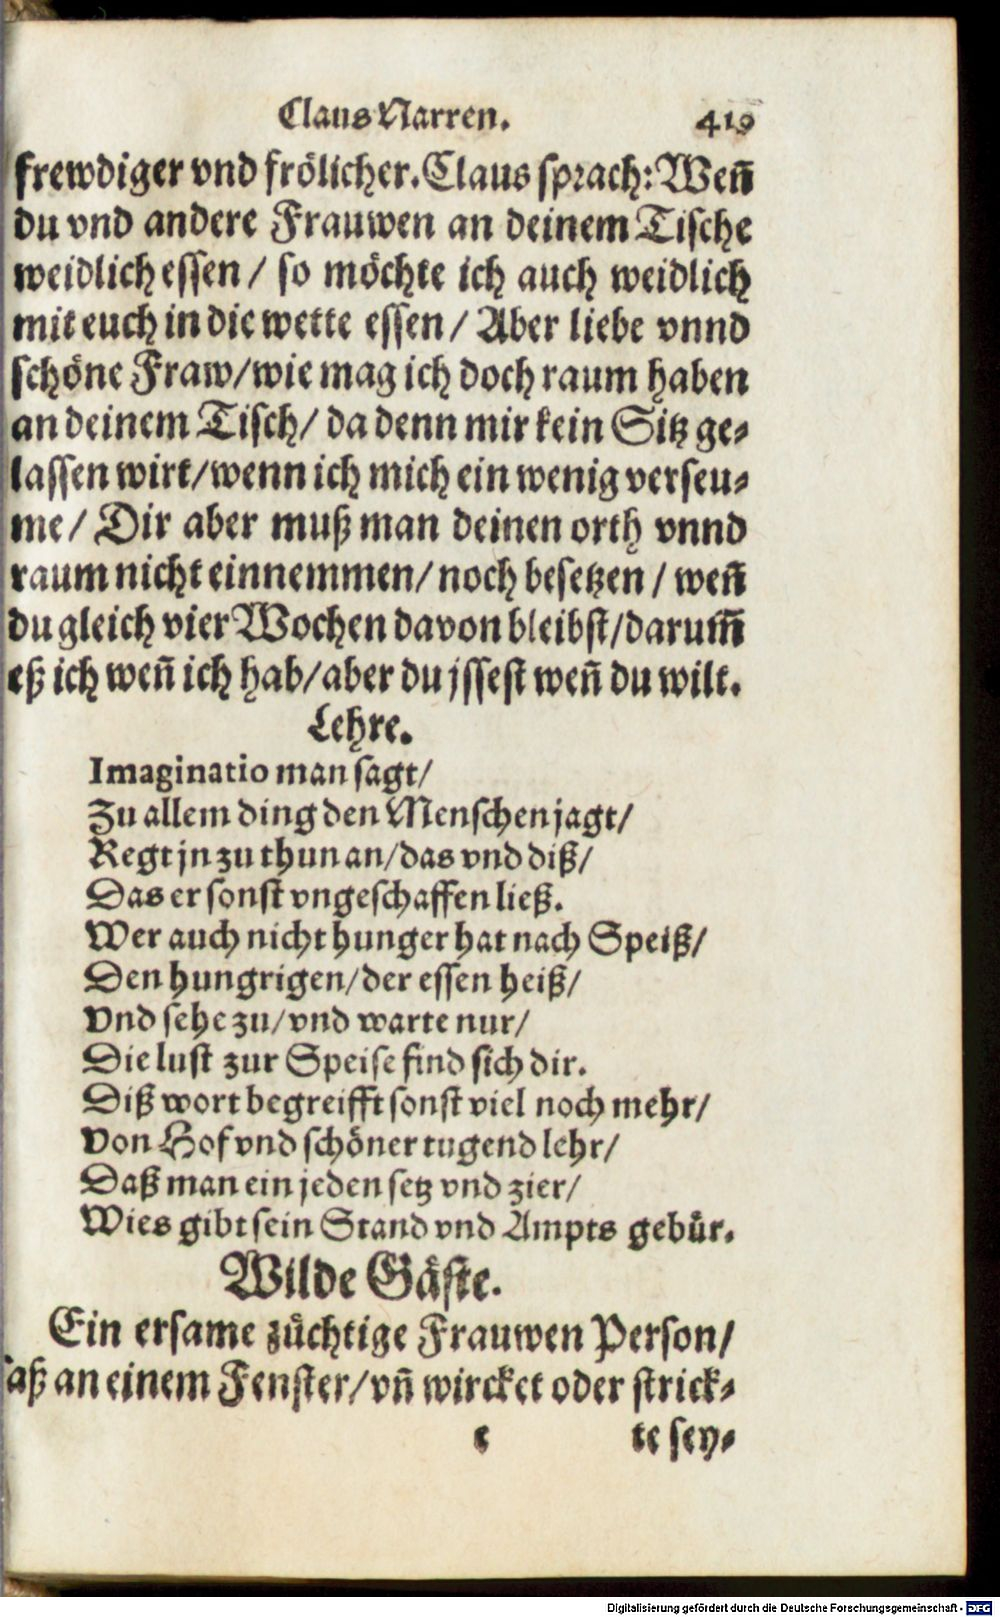 Claus Narren. 419
frewdiger vnd frölicher. Claus sprach: Weñ
du vnd andere Frauwen an deinem Tische
weidlich essen / so möchte ich auch weidlich
mit euch in die wette essen / Aber liebe vnnd
schöne Fraw/wie mag ich doch raum haben
an deinem Tisch/ da denn mir kein Sitz ge-
lassen wirt/wenn ich mich ein wenig verseu-
me/ Dir aber muß man deinen orth vnnd
raum nicht einnemmen/ noch besetzen / weñ
du gleich vier Wochen davon bleibst/darum̃
eß ich weñ ich hab/aber du jssest weñ du wilt.
Lehre.
Imaginatio man sagt/
Zu allem ding den Menschen jagt/
Regt jn zu thun an/das vnd diß/
Das er sonst vngeschaffen ließ.
Wer auch nicht hunger hat nach Speiß/
Den hungrigen/der essen heiß/
Vnd sehe zu/vnd warte nur/
Die lust zur Speise find sich dir.
Diß wort begreifft sonst viel noch mehr/
Von Hof vnd schöner tugend lehr/
Daß man ein jeden setz vnd zier/
Wies gibt sein Stand vnd Ampts gebür.
Wilde Gäste.
Ein ersame züchtige Frauwen Person/
saß an einem Fenster/vñ wircket oder strick-
e te sey-
Digitalisierung gefördert durch die Deutsche Forschungsgemeinschaft - DFG